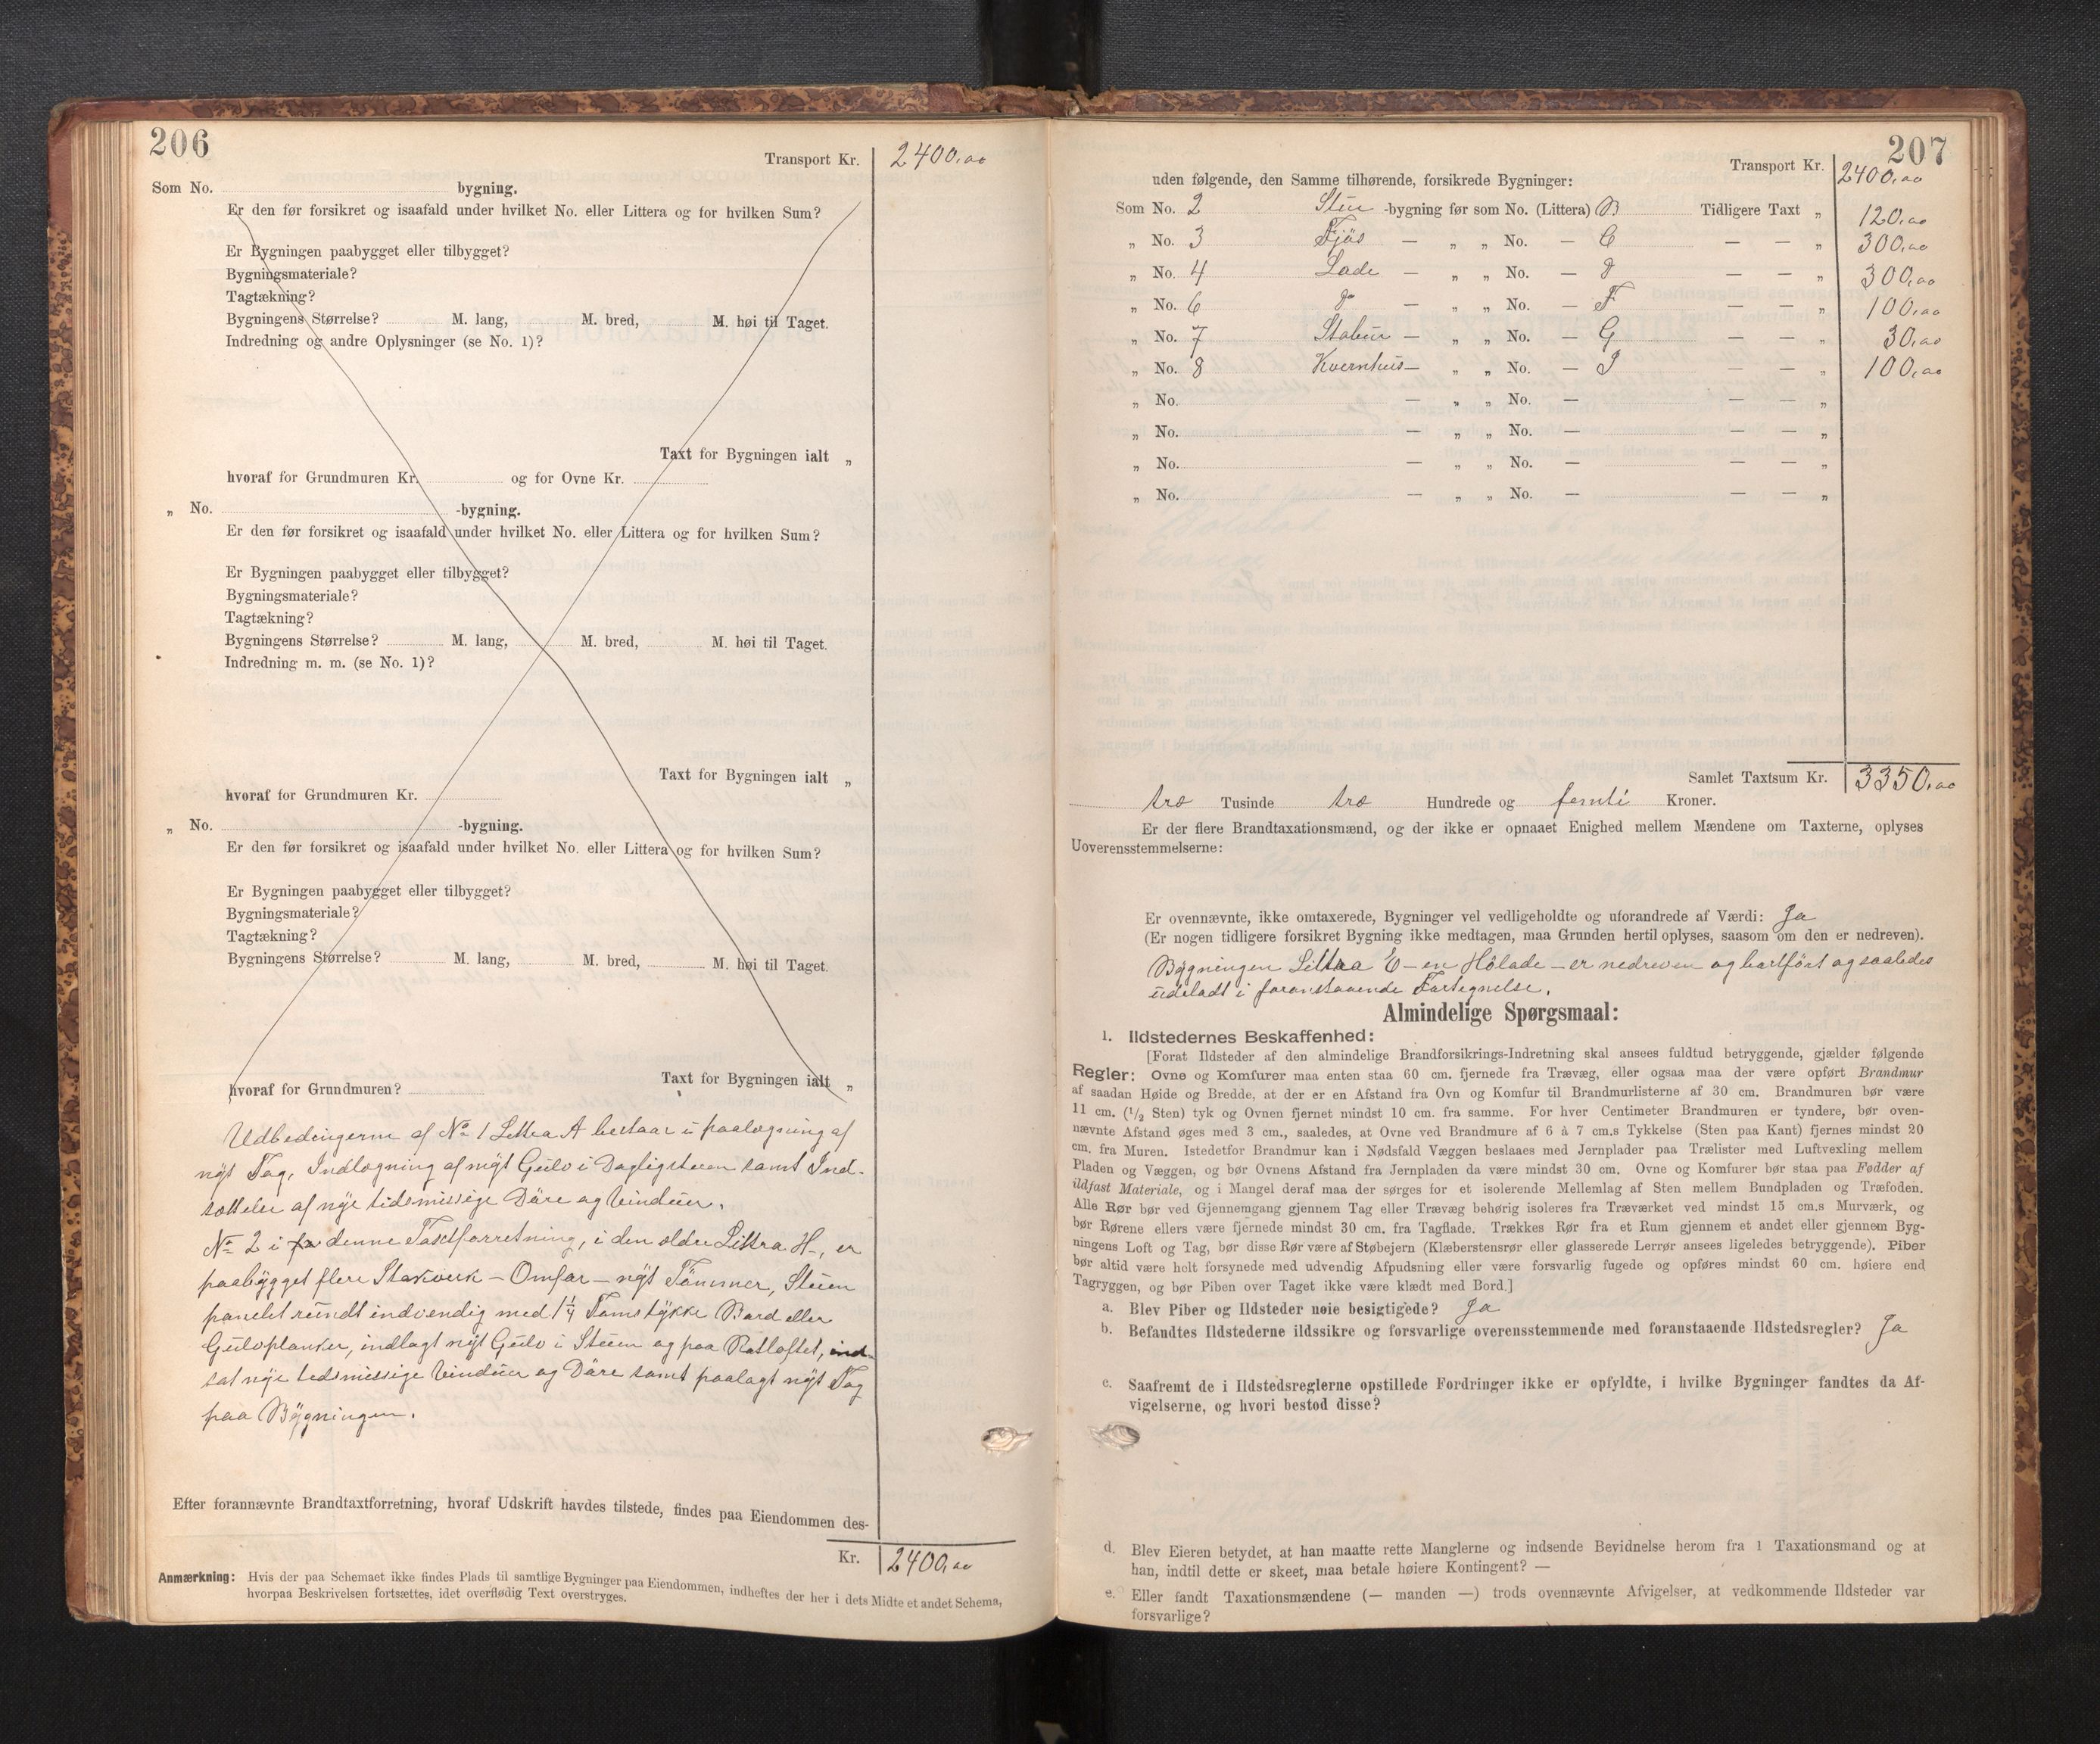 206
Transport Kr. 2400,00
Som No. bygning.
Er den før forsikret og isaafald under hvilket No. eller Littera og for hvilken Sum?
Er Bygningen paabygget eller tilbygget?
Bygningsmateriale?
Tagtækning?
Bygningens Størrelse? M. lang, M. bred, M. høi til Taget.
Indredning og andre Oplysninger (se No. 1)?
Taxt for Bygningen ialt „
hvoraf for Grundmuren Kr. og for Ovne Kr.
„ No. -bygning.
Er den før forsikret og isaafald under hvilket No. eller Littera og for hvilken Sum?
Er Bygningen paabygget eller tilbygget?
Bygningsmateriale?
Tagtækning?
Bygningens Størrelse? M. lang, M. bred, M. høi til Taget.
Indredning m. m. (se No. 1)?
Taxt for Bygningen ialt „
hvoraf for Grundmuren Kr.
„ No. -bygning.
Er den før forsikret og isaafald under hvilket No. eller Littera og for hvilken Sum?
Er Bygningen paabygget eller tilbygget?
Bygningsmateriale?
Tagtækning?
Bygningens Størrelse? M. lang, M. bred, M. høi til Taget.
Taxt for Bygningen ialt „
hvoraf for Grundmuren?
Udbedingerne af No 1 Littra A bestaar i paalægning af
nyt Tag, Indlægning af nyt Gulv i Dagligstuen samt Ind-
sættelse af nye tidsmæssige Døre og Vinduer.
No 2 i denne Taxtforretning, i den ældre Littra H-, er
paabygget flere Stokverk - Omfar - nyt Tømmer, Stuen
panelet rundt indvendig med 1 1/4 Toms tykke Bord eller
Gulvplanker, indlagt nyt Gulv i Stuen og paa Rotloftet, ind-
sat nye tidsmæssige Vinduer og Døre samt paalagt nyt Tag
paa Bygningen.
Efter forannævnte Brandtaxtforretning, hvoraf Udskrift havdes tilstede, findes paa Eiendommen des-
Kr. 2400,00
Anmærkning: Hvis der paa Schemaet ikke findes Plads til samtlige Bygninger paa Eiendommen, indheftes der her i dets Midte et andet Schema,
hvorpaa Beskrivelsen fortsættes, idet overflødig Text overstryges.
207
Transport Kr. 2400,00
uden følgende, den Samme tilhørende, forsikrede Bygninger:
Som No. 2 Stue -bygning før som No. (Littera) B Tidligere Taxt „ 120,00
„ No. 3 Fjøs — „ „ No. — C — — „ 300,00
„ No. 4 Lade — „ „ No. — D — — „ 300,00
„ No. 6 do — „ „ No. — F — — „ 100,00
„ No. 7 Stabur — „ „ No. — G — — „ 30,00
„ No. 8 Kvernhus — „ „ No. — I — — „ 100,00
„ No. — „ „ No. — — — „
„ No. — „ „ No. — — — „
„ No. — „ „ No. — — — „
„ No. — „ „ No. — — — „
Samlet Taxtsum Kr. 3350,00
tre Tusinde tre Hundrede og femti Kroner.
Er der flere Brandtaxationsmænd, og der ikke er opnaaet Enighed mellem Mændene om Taxterne, oplyses
Uoverensstemmelserne:
Er ovennævnte, ikke omtaxerede, Bygninger vel vedligeholdte og uforandrede af Værdi: Ja
(Er nogen tidligere forsikret Bygning ikke medtagen, maa Grunden hertil oplyses, saasom om den er nedreven).
Bygningen Littra E - en Hølade - er nedreven og bortført og saaledes
udeladt i foranstaaende Fortegnelse.
Almindelige Spørgsmaal:
1. Ildstedernes Beskaffenhed:
[Forat Ildsteder af den almindelige Brandforsikrings-Indretning skal ansees fuldtud betryggende, gjælder følgende
Regler: Ovne og Komfurer maa enten staa 60 cm. fjernede fra Trævæg, eller ogsaa maa der være opført Brandmur
af saadan Høide og Bredde, at der er en Afstand fra Ovn og Komfur til Brandmurlisterne af 30 cm. Brandmuren bør være
11 cm. (1/2 Sten) tyk og Ovnen fjernet mindst 10 cm. fra samme. For hver Centimeter Brandmuren er tyndere, bør oven-
nævnte Afstand øges med 3 cm., saaledes, at Ovne ved Brandmure af 6 à 7 cm.s Tykkelse (Sten paa Kant) fjernes mindst 20
cm. fra Muren. Istedetfor Brandmur kan i Nødsfald Væggen beslaaes med Jernplader paa Trælister med Luftvexling mellem
Pladen og Væggen, og bør Ovnens Afstand fra Jernpladen da være mindst 30 cm. Ovne og Komfurer bør staa paa Fødder af
ildfast Materiale, og i Mangel deraf maa der sørges for et isolerende Mellemlag af Sten mellem Bundpladen og Træfoden.
Alle Rør bør ved Gjennemgang gjennem Tag eller Trævæg behørig isoleres fra Træværket ved mindst 15 cm.s Murværk, og
bør Rørene ellers være fjernede mindst 30 cm. fra Tagflade. Trækkes Rør fra et Rum gjennem et andet eller gjennem Byg-
ningens Loft og Tag, bør disse Rør være af Støbejern (Klæberstensrør eller glasserede Lerrør ansees ligeledes betryggende). Piber
bør altid være helt forsynede med udvendig Afpudsning eller være forsvarlig fugede og opføres mindst 60 cm. høiere end
Tagryggen, og bør Piben over Taget ikke være klædt med Bord.]
a. Blev Piber og Ildsteder nøie besigtigede? Ja
b. Befandtes Ildstederne ildssikre og forsvarlige overensstemmende med foranstaaende Ildstedsregler? Ja
c. Saafremt de i Ildstedsreglerne opstillede Fordringer ikke er opfyldte, i hvilke Bygninger fandtes da Af-
vigelserne, og hvori bestod disse?
d. Blev Eieren betydet, at han maatte rette Manglerne og indsende Bevidnelse herom fra 1 Taxationsmand og at
han, indtil dette er skeet, maa betale høiere Kontingent? —
e. Eller fandt Taxationsmændene (— manden —) trods ovennævnte Afvigelser, at vedkommende Ildsteder var
forsvarlige?